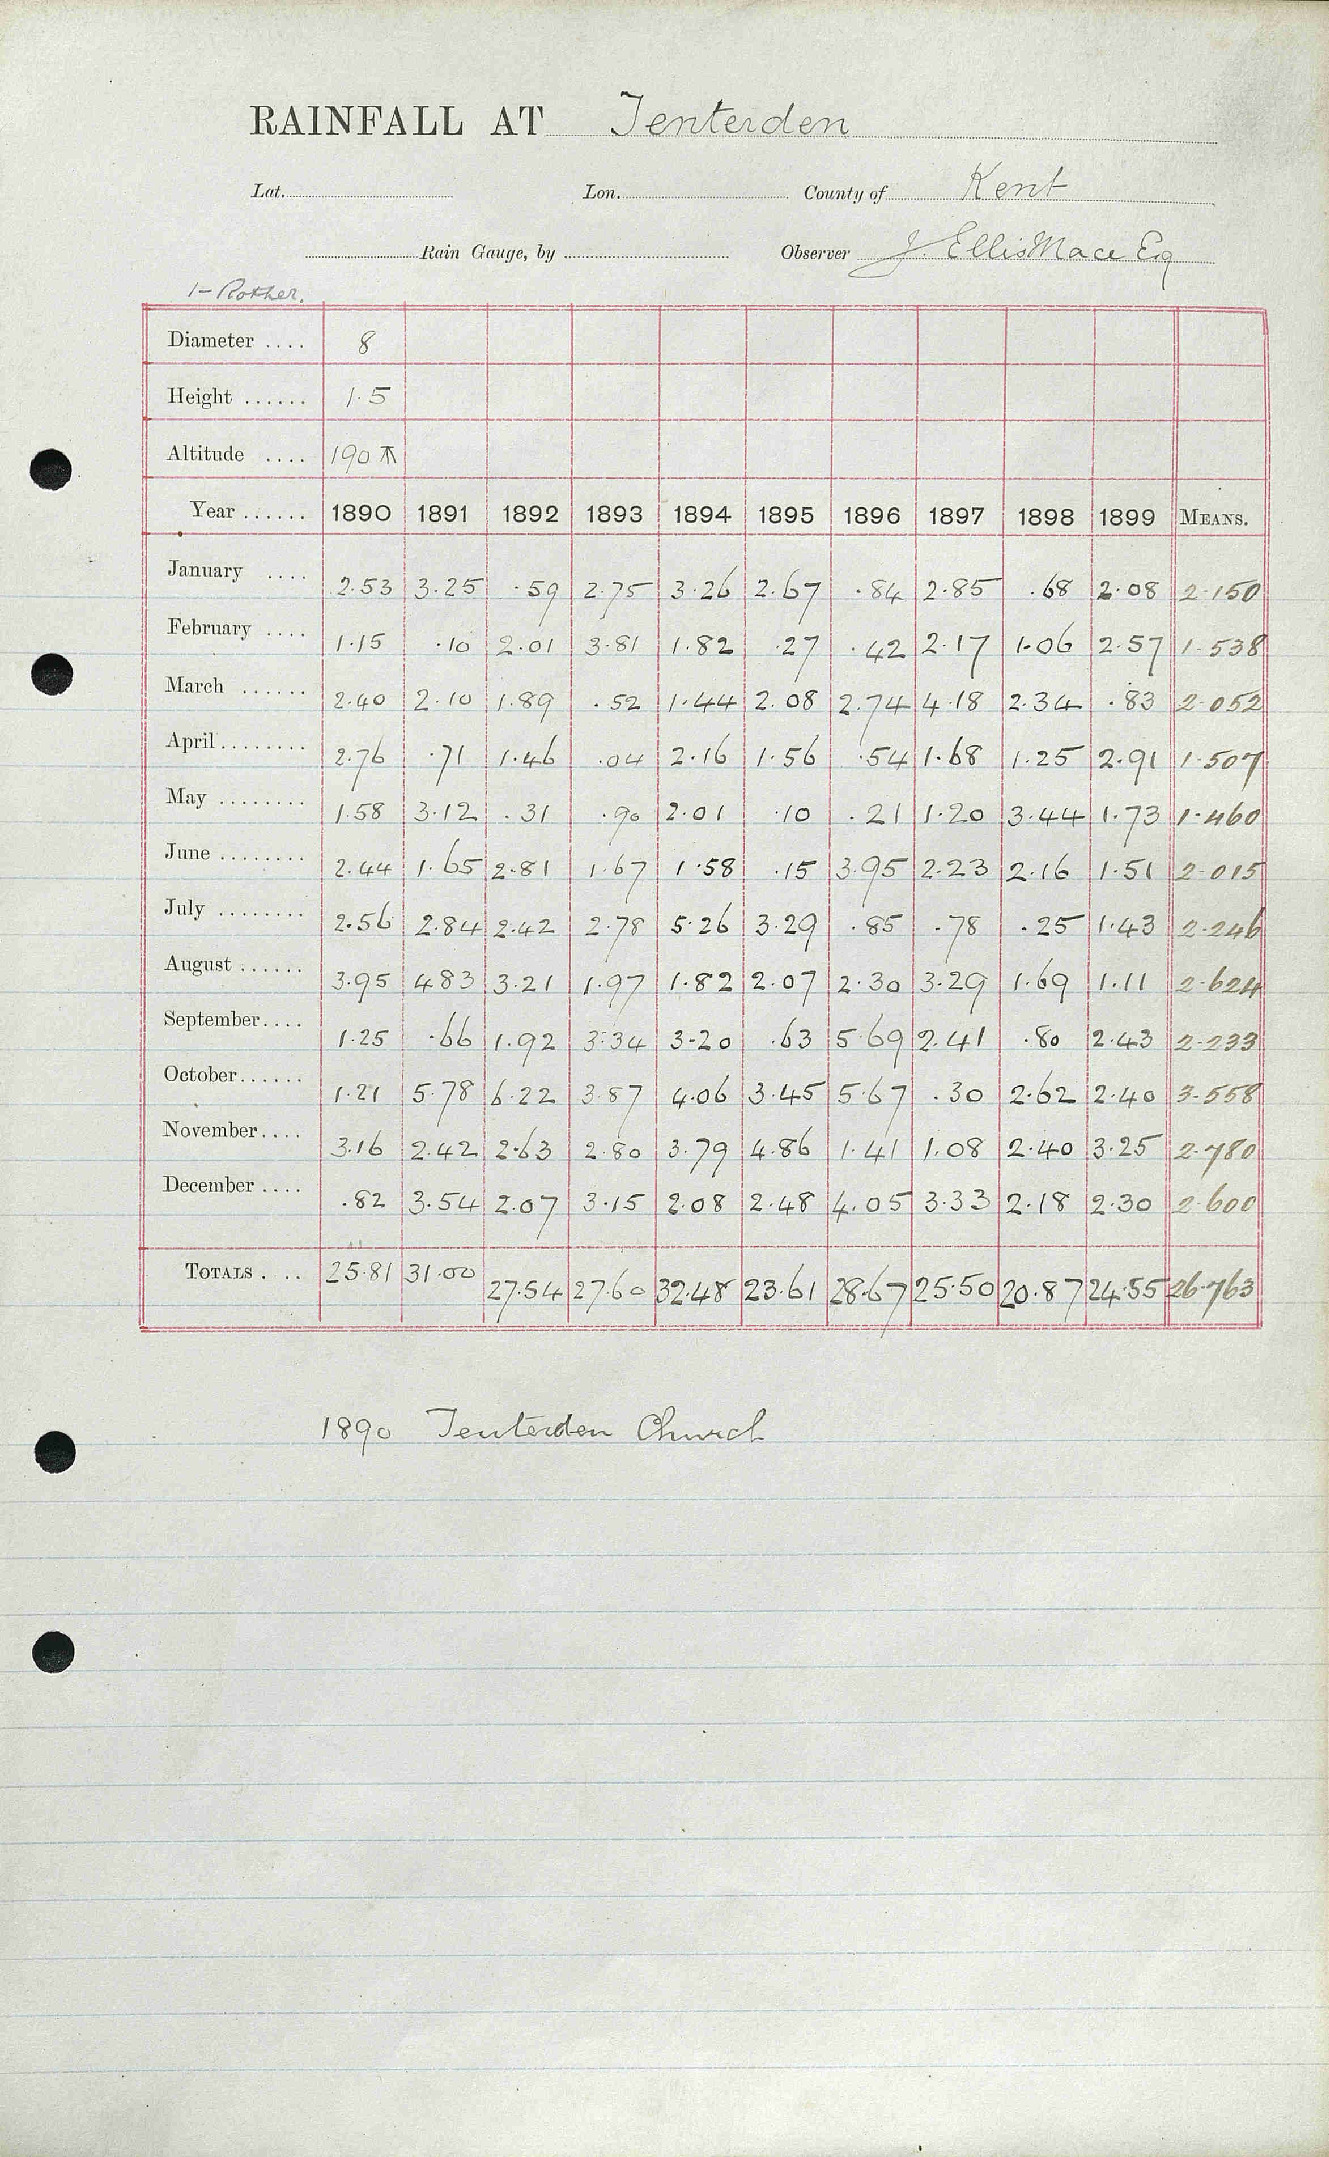 RAINFALL AT Tenterden
Lat. Lon. County of Kent
Rain Gauge, by Observer J. Ellis Mace Esq
1- Rother.
Diameter .... 8
Height ...... 1.5
Altitude .... 190
Year ...... 1890 1891 1892 1893 1894 1895 1896 1897 1898 1899 MEANS.
January .... 2.53 3.25 .59 2.75 3.26 2.67 .84 2.85 .68 2.08 2.150
February .... 1.15 .10 2.01 3.81 1.82 .27 .42 2.17 1.06 2.57 1.538
March ...... 2.40 2.10 1.89 .52 1.44 2.08 2.74 4.18 2.34 .83 2.052
April ........ 2.76 .71 1.46 .04 2.16 1.56 .54 1.68 1.25 2.91 1.507
May ........ 1.58 3.12 .31 .90 2.01 .10 .21 1.20 3.44 1.73 1.460
June ........ 2.44 1.65 2.81 1.67 1.58 .15 3.95 2.23 2.16 1.51 2.015
July ........ 2.56 2.84 2.42 2.78 5.26 3.29 .85 .78 .25 1.43 2.246
August ...... 3.95 4.83 3.21 1.97 1.82 2.07 2.30 3.29 1.69 1.11 2.624
September.... 1.25 .66 1.92 3.34 3.20 .63 5.69 2.41 .80 2.43 2.233
October...... 1.21 5.78 6.22 3.87 4.06 3.45 5.67 .30 2.62 2.40 3.558
November.... 3.16 2.42 2.63 2.80 3.79 4.86 1.41 1.08 2.40 3.25 2.780
December .... .82 3.54 2.07 3.15 2.08 2.48 4.05 3.33 2.18 2.30 2.600
TOTALS .... 25.81 31.00 27.54 27.60 32.48 23.61 28.67 25.50 20.87 24.55 26.763
1890 Tenterden Church